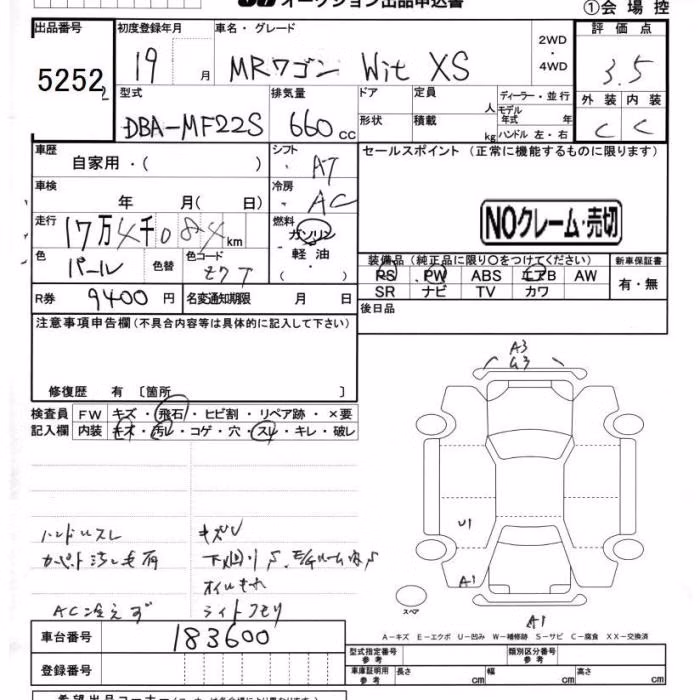 オークション出品申込書
①会場控
出品番号 初度登録年月 車名・グレード 評価点
52522 19 月 MRワゴン Wit XS 2WD ・ 4WD 3.5
型式 排気量 ドア 定員 ディーラー・並行 外装 内装
DBA-MF22S 660 cc 形状 積載 人 kg モデル年式 年 ハンドル 左・右 C C
車歴 シフト セールスポイント (正常に機能するものに限ります)
自家用・( ) AT
車検 冷房
年 月( 日) AC
NOクレーム・売切
走行 燃料
17万4千084km ガソリン
・軽油
・( )
色 色替 色コード
パール Z7T
装備品 (純正品に限り○をつけてください) 新車保証書
PS PW ABS エアB AW 有・無
SR ナビ TV カワ
R券 9400円 名変通知期限 月 日
後日品
注意事項申告欄(不具合内容等は具体的に記入して下さい)
修復歴 有 〔箇所 〕
A3
G3
検査員 FW キズ・飛石・ヒビ割・リペア跡・×要
記入欄 内装 キズ・汚レ・コゲ・穴・スレ・キレ・破レ
U1
ハンドルスレ キズU
カーペット汚レ毛有 下廻りS、エンジンルーム内S
オイルもれ
AC冷えず ライトクモリ
A1
スペア
A1
A-キズ E-エクボ U-凹み W-補修跡 S-サビ C-腐食 XX-交換済
車台番号 183600
型式指定番号 参考 類別区分番号 参考
登録番号
車庫証明用 参考 長さ cm 幅 cm 高さ cm